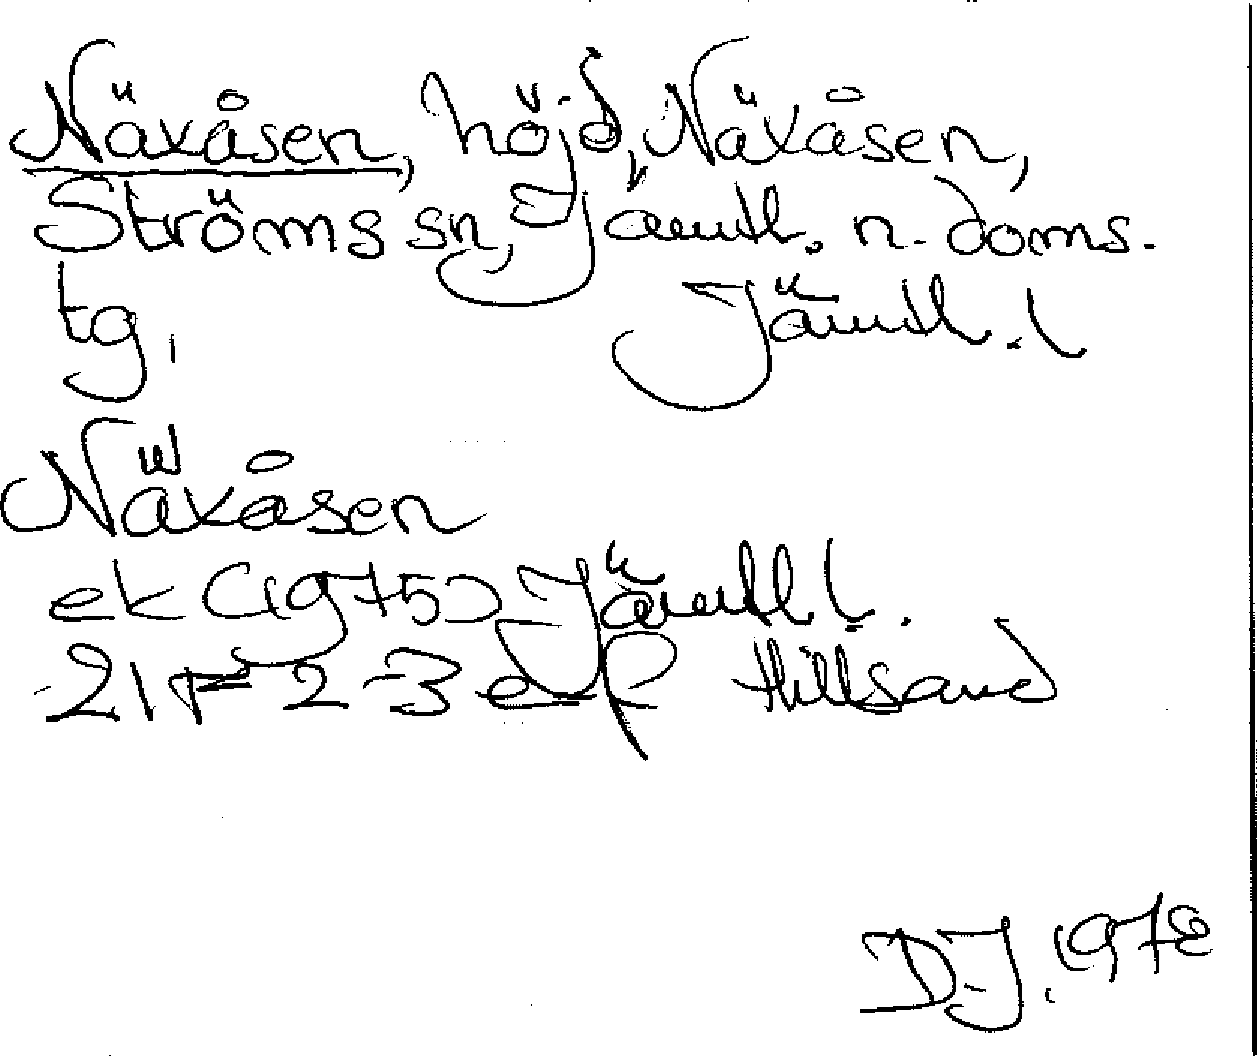 Näxåsen, höjd, Näxåsen,
Ströms sn, Jämtl. n. doms.
tg. Jämtl. l
Näxåsen
ek (1975) Jämtl l.
21 F 2-3 e-f Hillsand
D-J. 1978